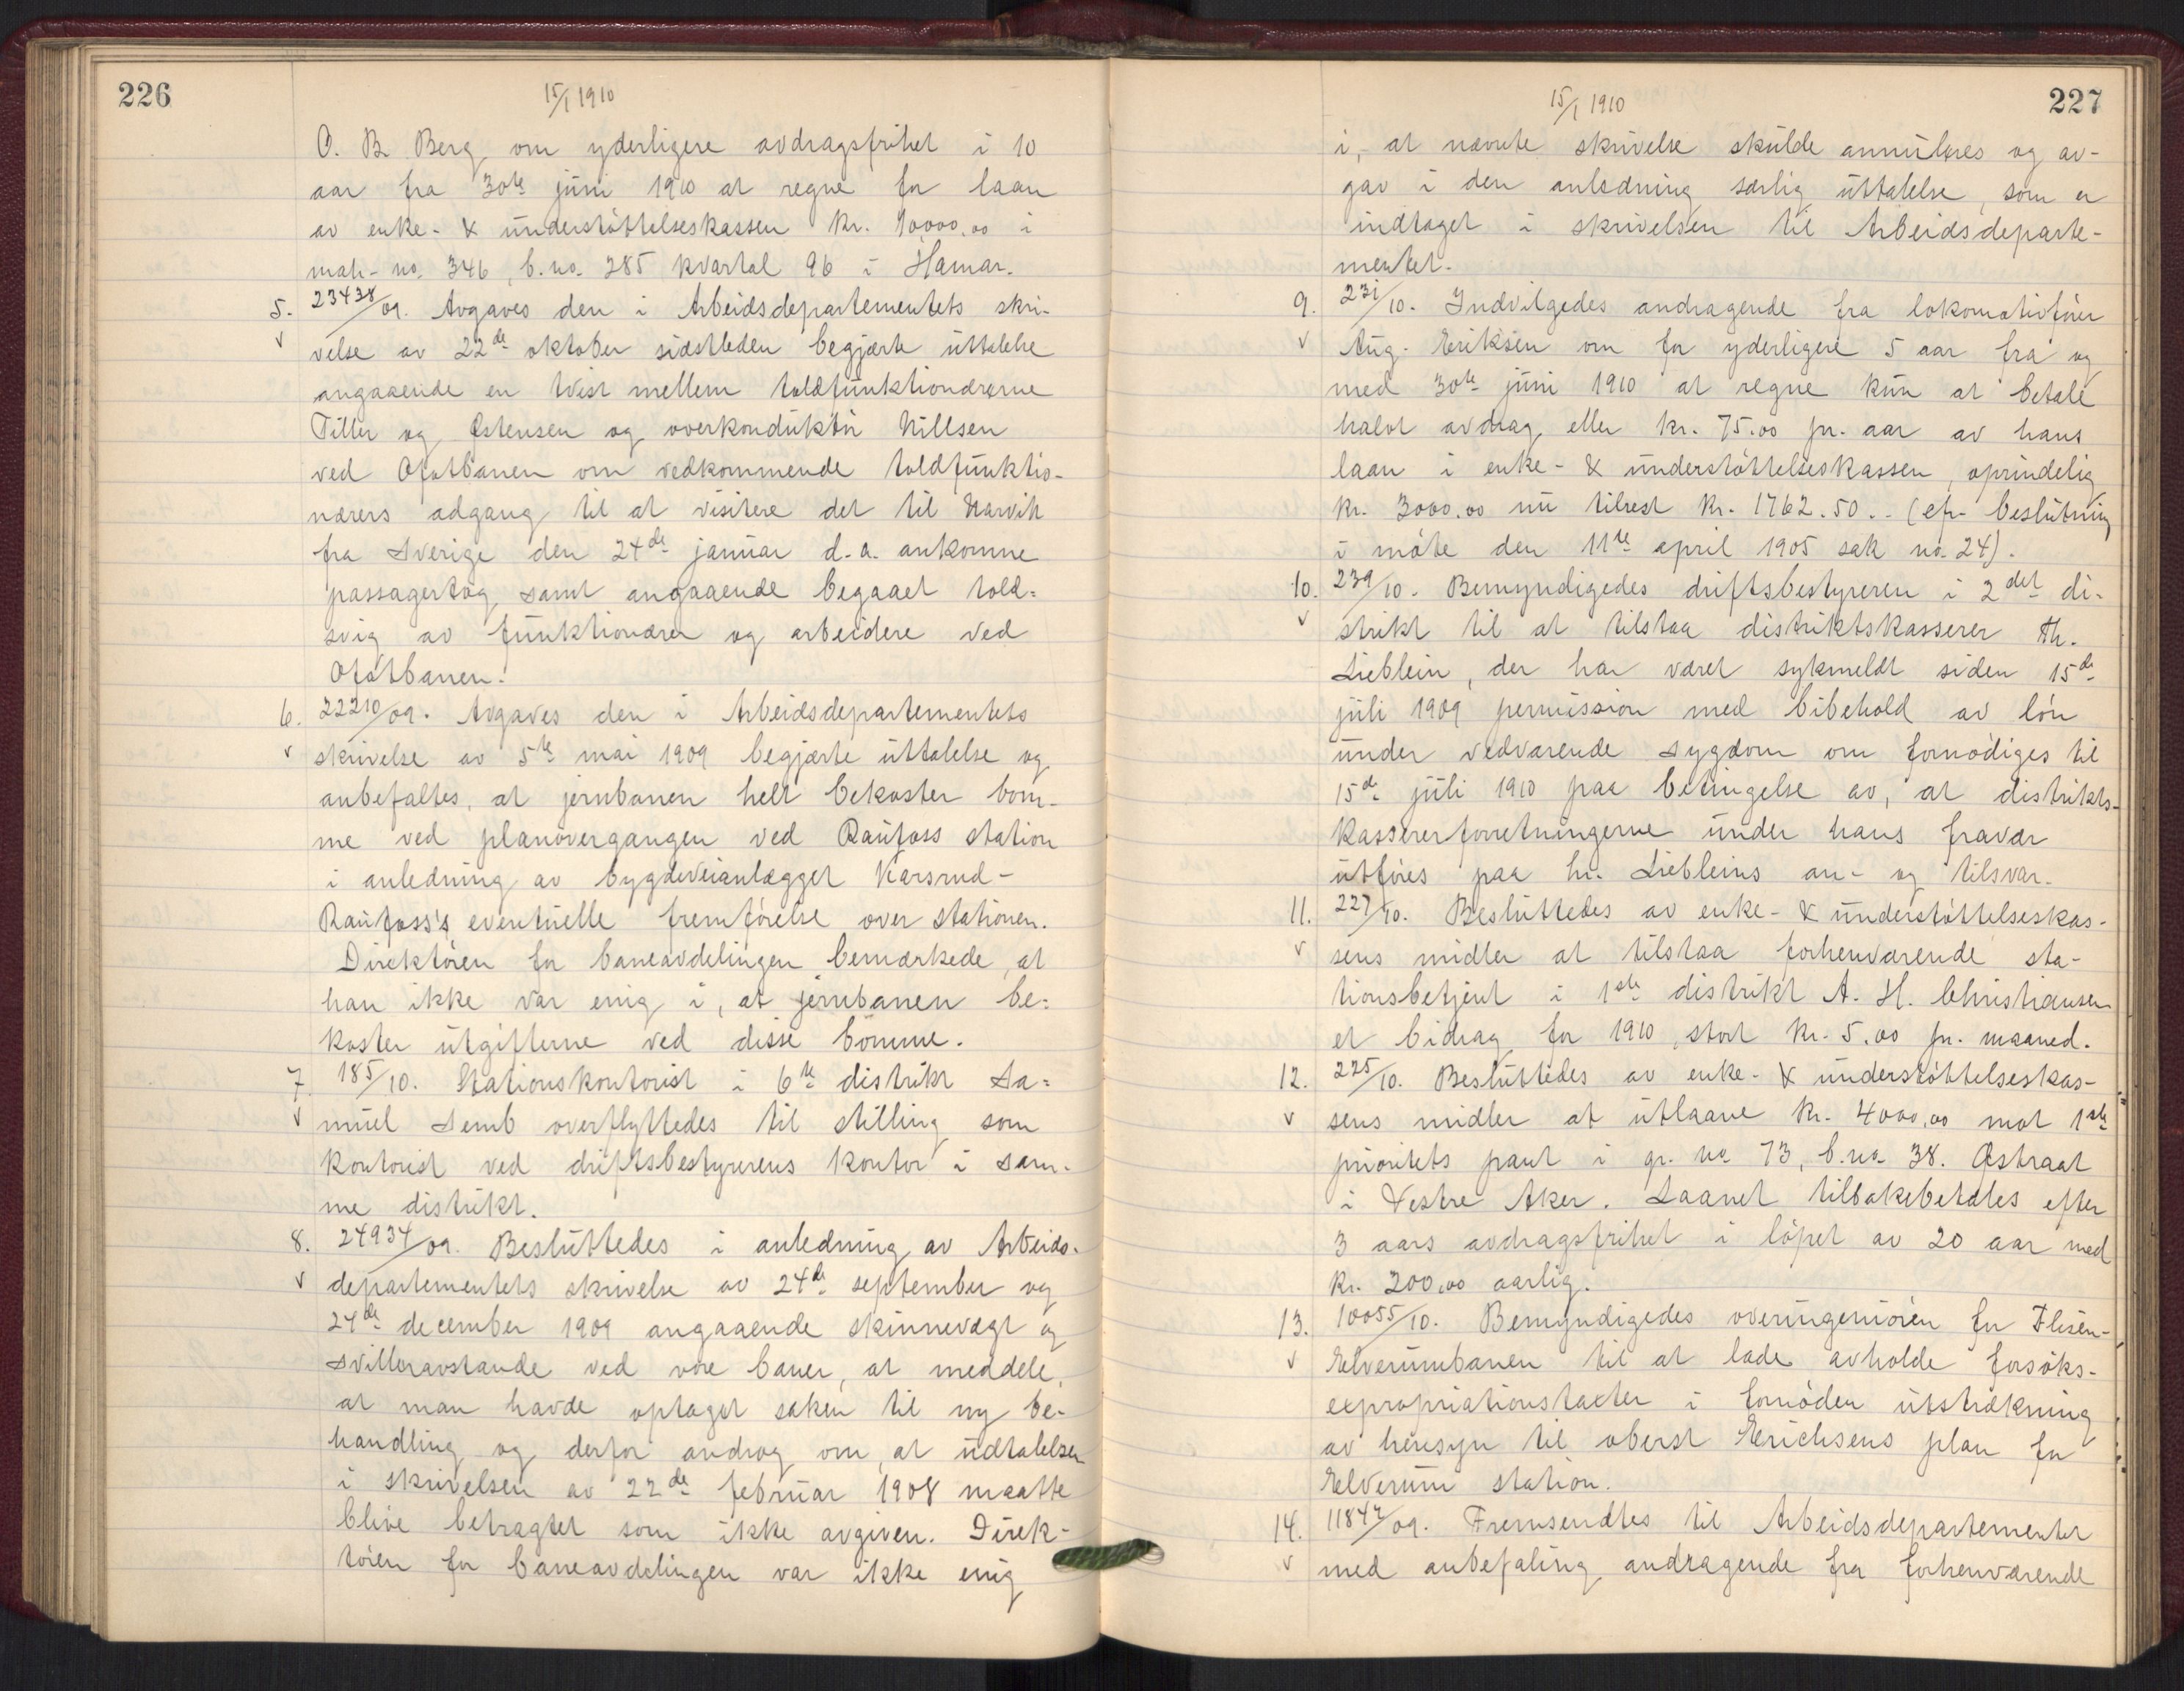 226
15/1 1910
O. B. Berg, om yderligere avdragsfrihet i 10
aar fra 30te juni 1910 at regne for laan
av enke- & understøttelseskassen kr. 10000.00 i
matr. no. 346, b. no. 285 kvartal 96 i Hamar.
5. 23438/09. Avgaves den i Arbeidsdepartementets skri-
velse av 22de oktober sidstleden begjærte uttalelse
angaaende en tvist mellem toldfunktionærerne
Tiller og Østensen og overkonduktør Nillsen
ved Ofotbanen om vedkommende toldfunktio-
nærers adgang til at visitere det til Narvik
fra Sverige den 24de januar d. a. ankomne
passagertog, samt angaaende begaaet told-
svig av funktionærer og arbeidere ved
Ofotbanen.
6. 22210/09. Avgaves den i Arbeidsdepartementets
skrivelse av 5te mai 1909 begjærte uttalelse og
anbefaltes, at jernbanen helt bekoster bom-
me ved planovergangen ved Raufoss station
i anledning av bygdeveianlægget Karsrud-
Raufoss's eventuelle fremførelse over stationen.
Direktøren for baneavdelingen bemærkede, at
han ikke var enig i, at jernbanen be-
koster utgifterne ved disse bomme.
7. 185/10. Stationskontorist i 6te distrikt Sa-
muel Semb overflyttedes til stilling som
kontorist ved driftsbestyrerens kontor i sam-
me distrikt.
8. 24934/09. Besluttedes i anledning av Arbeids-
departementets skrivelse av 24de september og
24de december 1909 angaaende skinnevægt og
svilleravstande ved vore baner, at meddele,
at man havde optaget saken til ny be-
handling og derfor androg om, at udtalelsen
i skrivelsen av 22de februar 1908 maatte
blive betragtet som ikke avgiven. Direk-
tøren for baneavdelingen var ikke enig
227
15/1 1910
i, at nævnte skrivelse skulde annuleres og av-
gav i den anledning særlig uttalelse, som er
indtaget i skrivelsen til Arbeidsdeparte-
mentet.
9. 231/10. Indvilgedes andragende fra lokomotivfører
Aug. Eriksen om for yderligere 5 aar fra og
med 30te juni 1910 at regne kun at betale
halvt avdrag, eller kr. 75.00 pr. aar av hans
laan i enke- & understøttelseskassen, oprindelig
kr. 3000.00 nu tilrest kr. 1762.50.- (cfr. beslutning
i møte den 11te april 1905 sak no. 24).
10. 239/10. Bemyndigedes driftsbestyreren i 2det di-
strikt til at tilstaa distriktskasserer Th.
Lieblein, der har været sykmeldt siden 15de
juli 1909 permission med bibehold av løn
under vedvarende sygdom om fornødiges til
15de juli 1910 paa betingelse av, at distrikts-
kassererforretningerne under hans fravær
utføres paa hr. Liebleins an- og tilsvar.
11. 227/10. Besluttedes av enke- & understøttelseskas-
sens midler at tilstaa forhenværende sta-
tionsbetjent i 1ste distrikt A. H. Christiansen
et bidrag for 1910, stort kr. 5.00 pr. maaned.
12. 225/10. Besluttedes av enke- & understøttelseskas-
sens midler at utlaane kr. 4000.00 mot 1ste
prioritets pant i gr. no 73, b. no 38. Østraat
i Vestre Aker. Laanet tilbakebetales efter
3 aars avdragsfrihet i løpet av 20 aar med
kr. 200.00 aarlig.
13. 10055/10. Bemyndigedes overingeniøren for Flisen-
Elverumbanen til at lade avholde forsøks-
expropriationstaxter i fornøden utstrækning
av hensyn til oberst Erichsens plan for
Elverum station.
14. 11847/09. Fremsendtes til Arbeidsdepartementet
med anbefaling andragende fra forhenværende